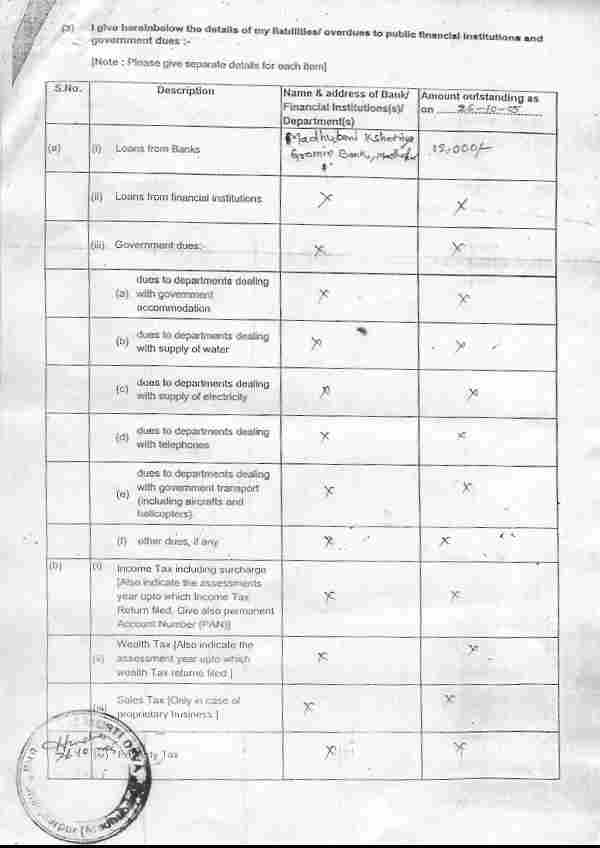 (3) I give hereinbelow the details of my liabilities/ overdues to public financial institutions and
government dues :-
[Note : Please give separate details for each item]
S.No. Description Name & address of Bank/ Financial Institutions(s)/ Department(s) Amount outstanding as on 26-10-05
(a) (i) Loans from Banks Madhubani Kshetriya Gramin Bank, 15,000/-
(ii) Loans from financial institutions X X
(iii) Government dues:- X X
(a) dues to departments dealing
with government
accommodation X X
(b) dues to departments dealing
with supply of water X X
(c) dues to departments dealing
with supply of electricity X X
(d) dues to departments dealing
with telephones X X
(e) dues to departments dealing
with government transport
(including aircrafts and
helicopters) X X
(f) other dues, if any X X
(b) (i) Income Tax including surcharge
[Also indicate the assessments
year upto which Income Tax
Return filed. Give also permanent
Account Number (PAN)] X X
(ii) Wealth Tax [Also indicate the
assessment year upto which
wealth Tax returns filed.] X X
(iii) Sales Tax [Only in case of
proprietary business.] X X
(iv) Property Tax X X